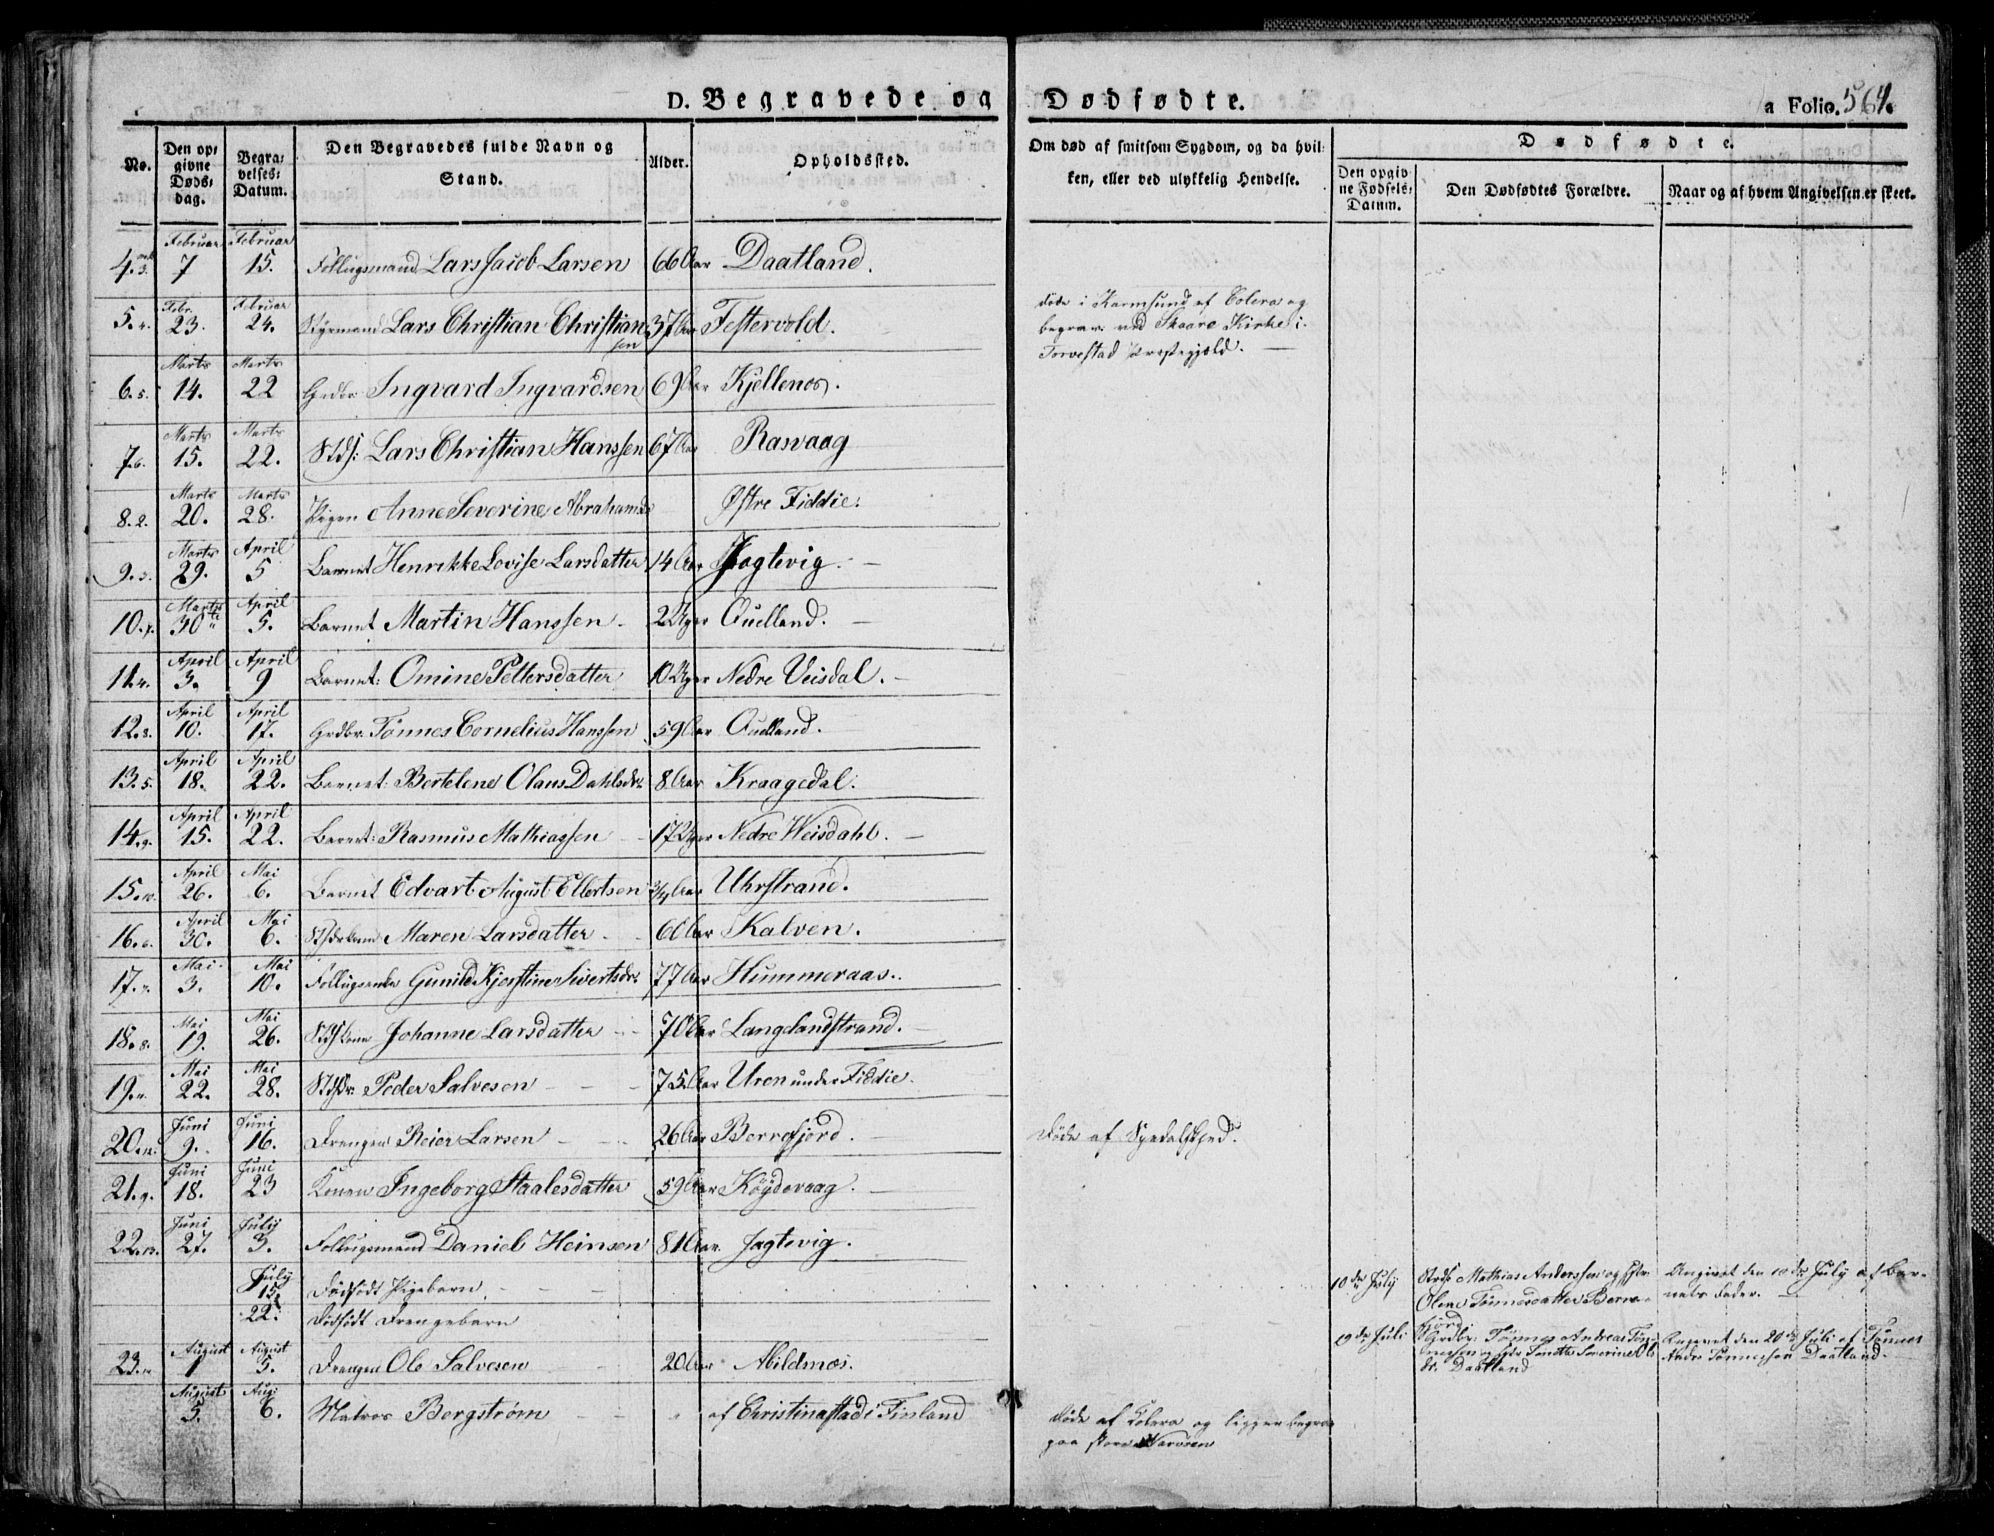 D. Begravede og Dødfødte.
a Folio. 564.
No. Den opgivne Dødsdag. Begravelses Datum. Den Begravedes fulde Navn og Stand. Alder. Opholdssted. Om død af smitsom Sygdom, og da hvilken, eller ved ulykkelig Hendelse. Dødfødte.
Den opgivne Fødsels Datum. Den Dødfødtes Forældre. Naar og af hvem Angivelsen er skeet.
Februar Februar
4. 3. 7 15. Lars Jacob Larsen 66 Aar Daatland.
Febr. Februar
5. 4. 23. 24. Styrmand Lars Christian Christian 37 Aar Festervold. døde i Karmsund af Colera og
sen begrav: ved Skaare Kirke i
Torvestad Præstegjæld.
Marts Marts
6. 5. 14. 22 Grdbr Ingvard Ingvardsen 69 Aar Kjellenos.
Marts Marts
7. 6. 15. 22. Lars Christian Hanssen 67 Aar Rasvaag
Marts Marts
8. 2. 20. 28. Pigen Anne Severine Abrahamsd Østre Fiddie.
Marts April
9. 3. 29. 5 Barnet Henrikke Lovise Larsdatter 14 Aar Jogtevig.
Marts April
10. 7. 30 5. Barnet Martin Hanssen 2 Uger Ouelland.
April April
11. 4. 3. 9 Barnet: Omine Pettersdatter 10 Uger Nedre Veisdal.
April April
12. 8. 10. 17. Grdbr. Tönnes Cornelius Hanssen 59 Aar Ouelland.
April April
13. 5. 18. 22. Barnet: Bertelene Olaus Dahlsdr. 8 Aar Kraagedal.
April April
14. 9. 15. 22. Barnet: Rasmus Mathiassen 17 Uger Nedre Weisdahl.
April Mai
15. 10. 26. 6. Barnet Edvart August Ellertsen 3/4 Aar Uhrstrand.
April Mai
16. 6. 30. 6. Maren Larsdatter Aar Kalven.
Mai Mai
17. 7. 3. 10. Gunild Kjerstine Sivertsdr. 77 Aar Hummeraas.
Mai Mai
18. 8. 19. 26. Johanne Larsdatter 70 Aar Langelandstrand.
Mai Mai
19. 11. 22. 28. Peder Salvesen 75 Aar Uren under Fiddie.
Juni Juni
20. 12. 9. 16. Drengen Reier Larsen 26 Aar Berrefjord. Døde af Spedalskhed.
Juni Juni
21. 9. 18. 23 Konen Ingeborg Staalesdatter 59 Aar Köydevaag.
Juni July
22. 13. 27. 3. Daniel Heinsen 81 Aar. Jagtevig.
July
15. Dødfödt Pigebarn. 10 de July Mathias Anderssen og Angivet den 10 de July af Bar-
Olene Tönnesdatter Berre- nets Fader.
22. Dödfödt Drengebarn fjord
19 de Juli Grdbr. Tönnes Andreas Tön- Angivet den 20 de Juli af Tönnes
August August nessen og Severine Ols Andr. Tönnessen Daatland.
23. 1 5. Drengen Ole Salvesen 20 Aar Abildmos. dr. Daatland
August Aug:
5. 6. Matros Bergström af Christinastad i Finland Døde af Kolera og ligger begra
paa store